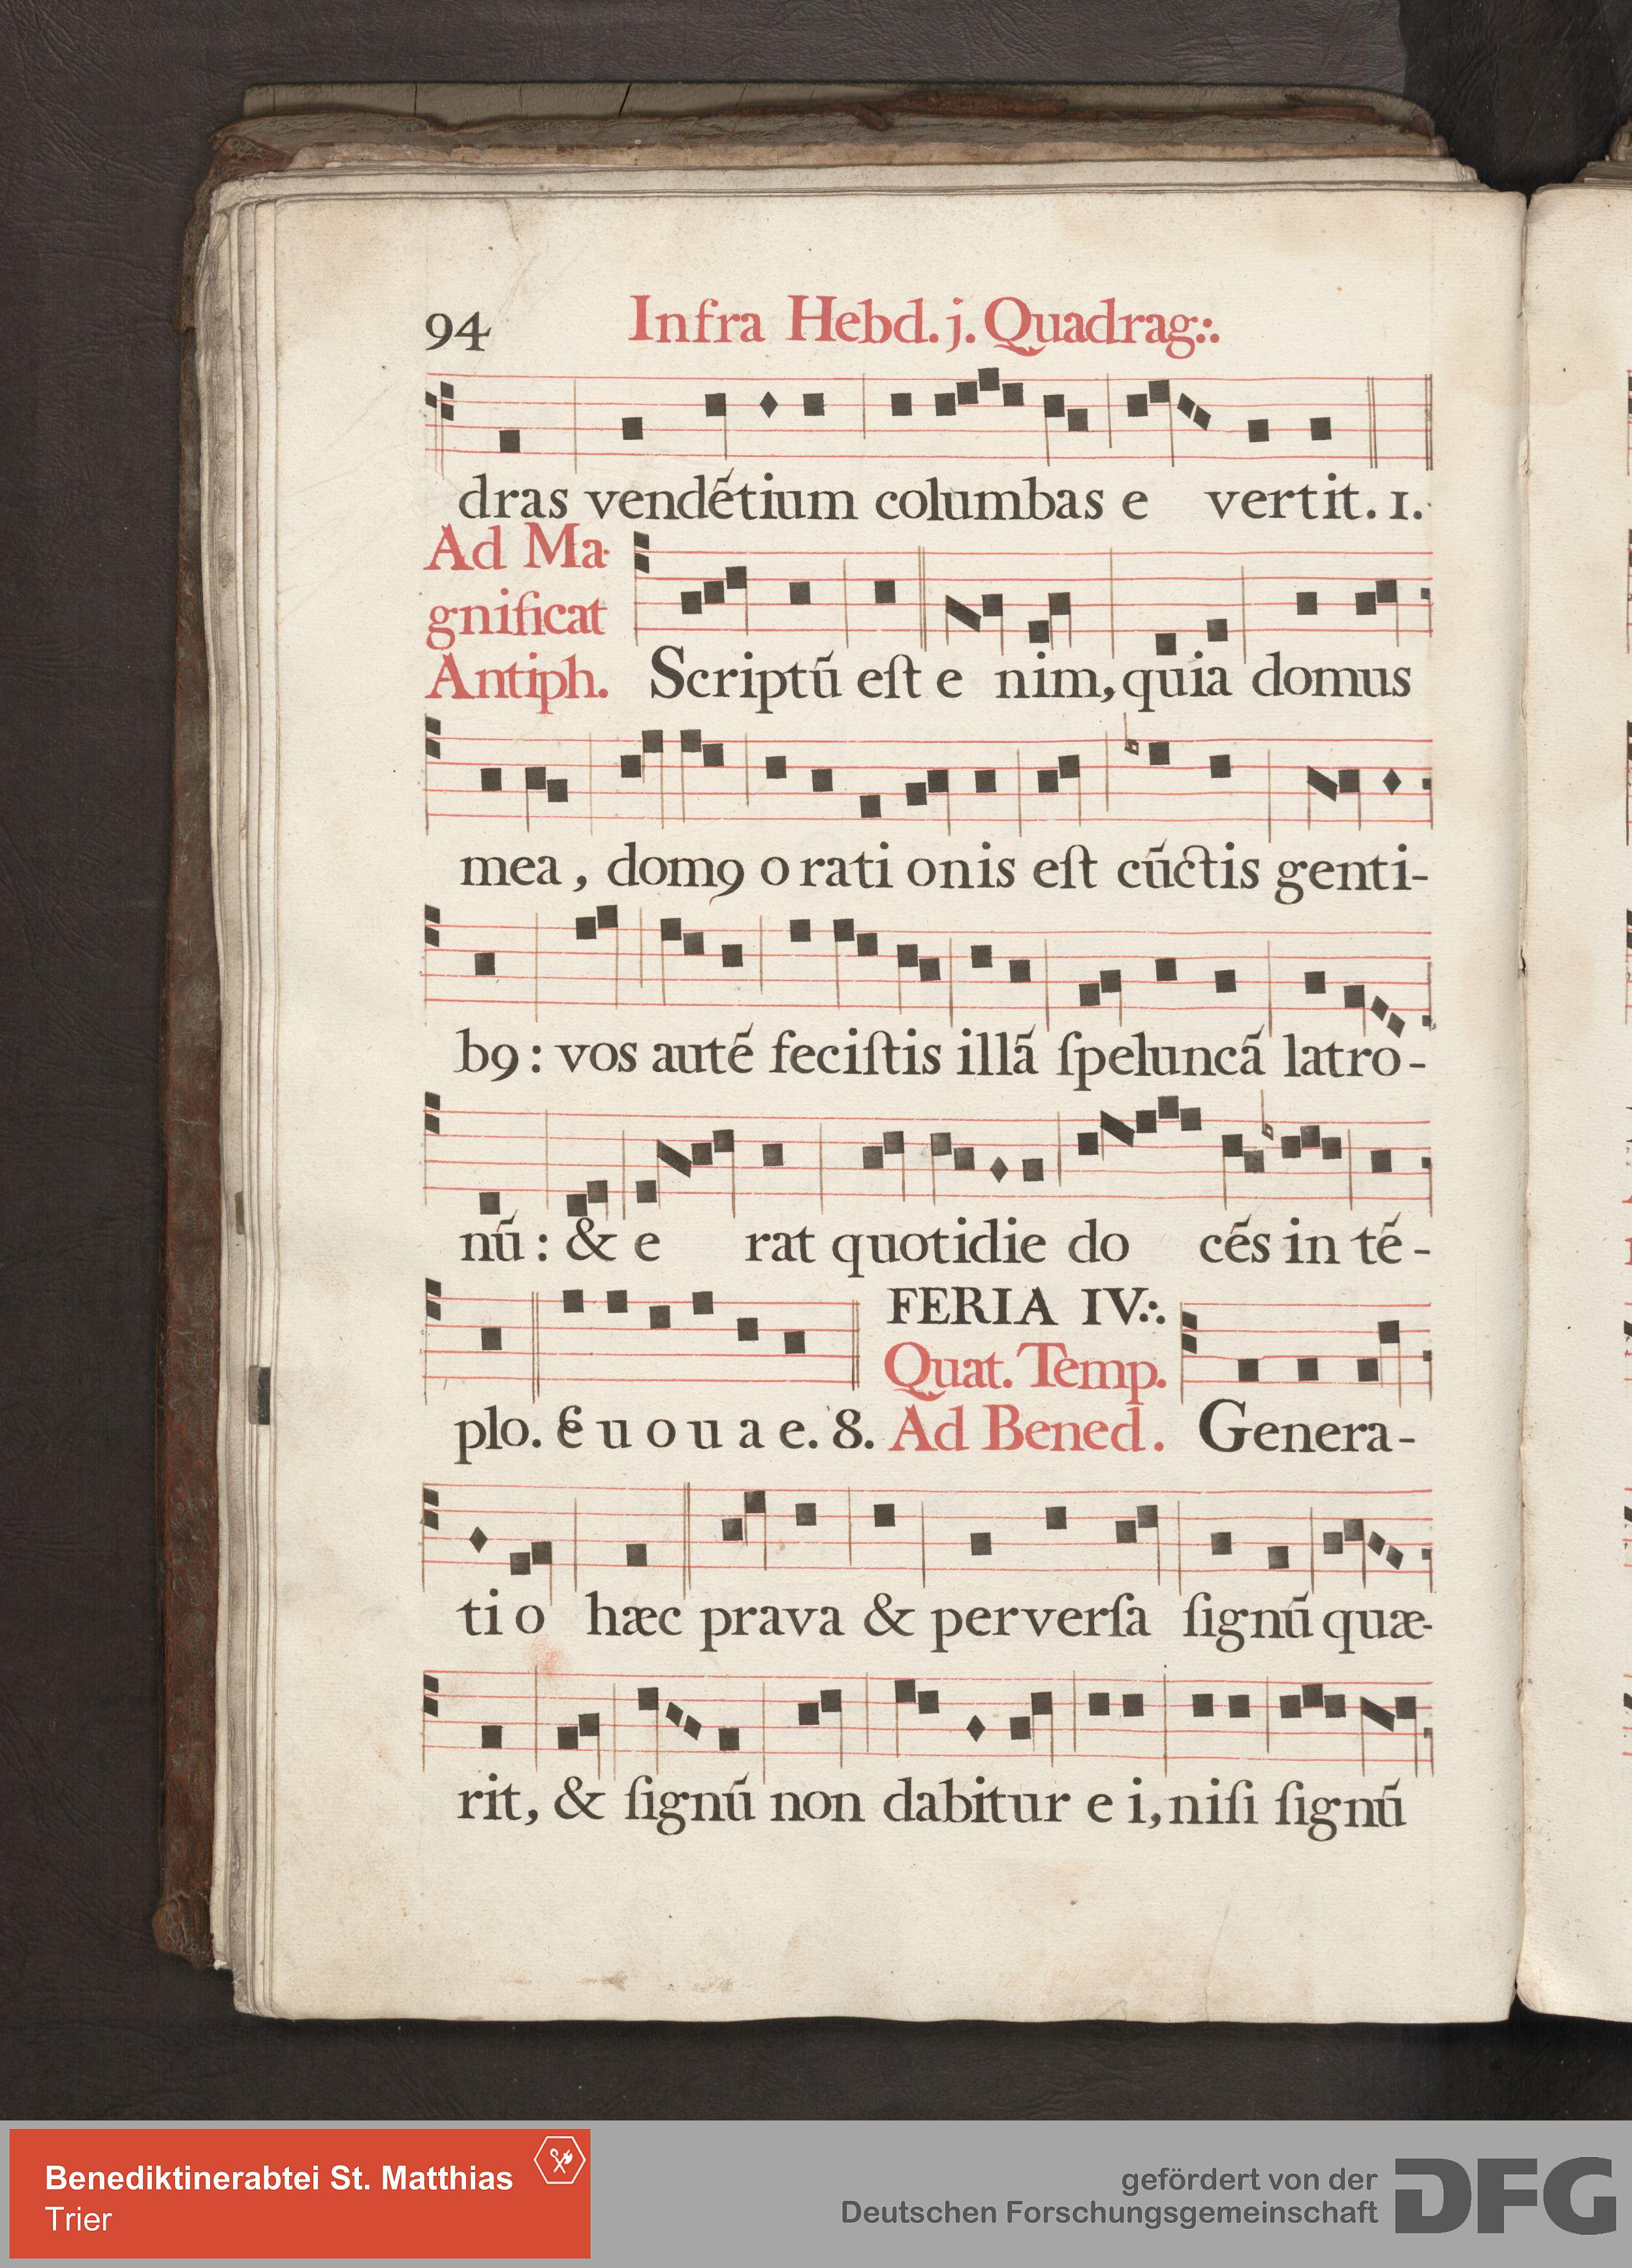 94 Infra Hebd. j. Quadrag:.
dras vendētium columbas e vertit. 1.
Ad Ma-
gnificat
Antiph. Scriptū eſt e nim, quia domus
mea, domꝰ o rati onis eſt cūctis genti-
bꝰ: vos autē feciſtis illā ſpeluncā latro-
nū: & e rat quotidie do cēs in tē-
plo. E u o u a e. 8.
FERIA IV:.
Quat. Temp.
Ad Bened. Genera-
ti o hæc prava & perverſa ſignū quæ-
rit, & ſignū non dabitur e i, niſi ſignū
Benediktinerabtei St. Matthias
Trier
gefördert von der
Deutschen Forschungsgemeinschaft
DFG